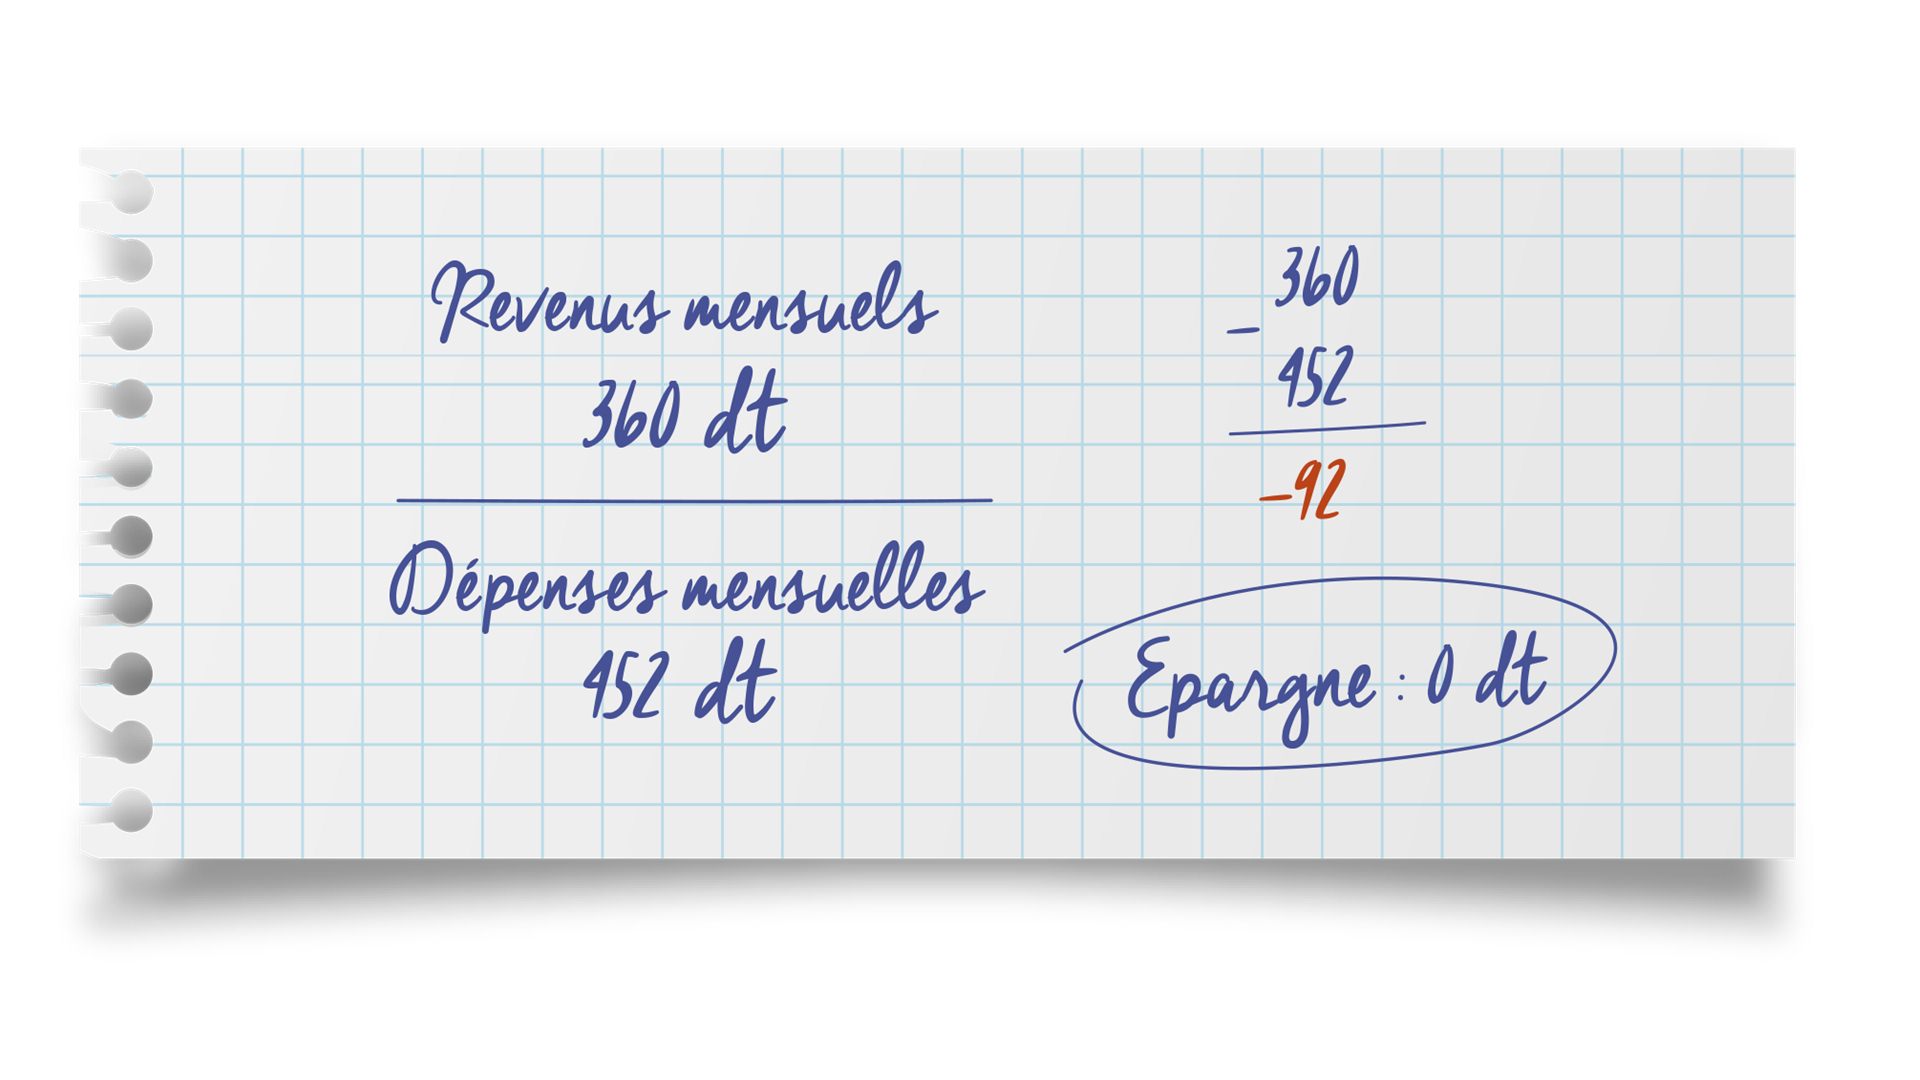 Revenus mensuels
360 dt
Dépenses mensuelles
452 dt
360
–
452
–92
Epargne : 0 dt